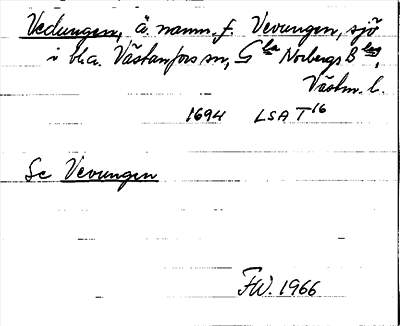 Vedungen, ä. namn f. Vevungen, sjö
i bl.a. Västanfors sn, Gla Norbergs Blag,
Västm. l.
1694 LSA T16
Se Vevungen
FW. 1966